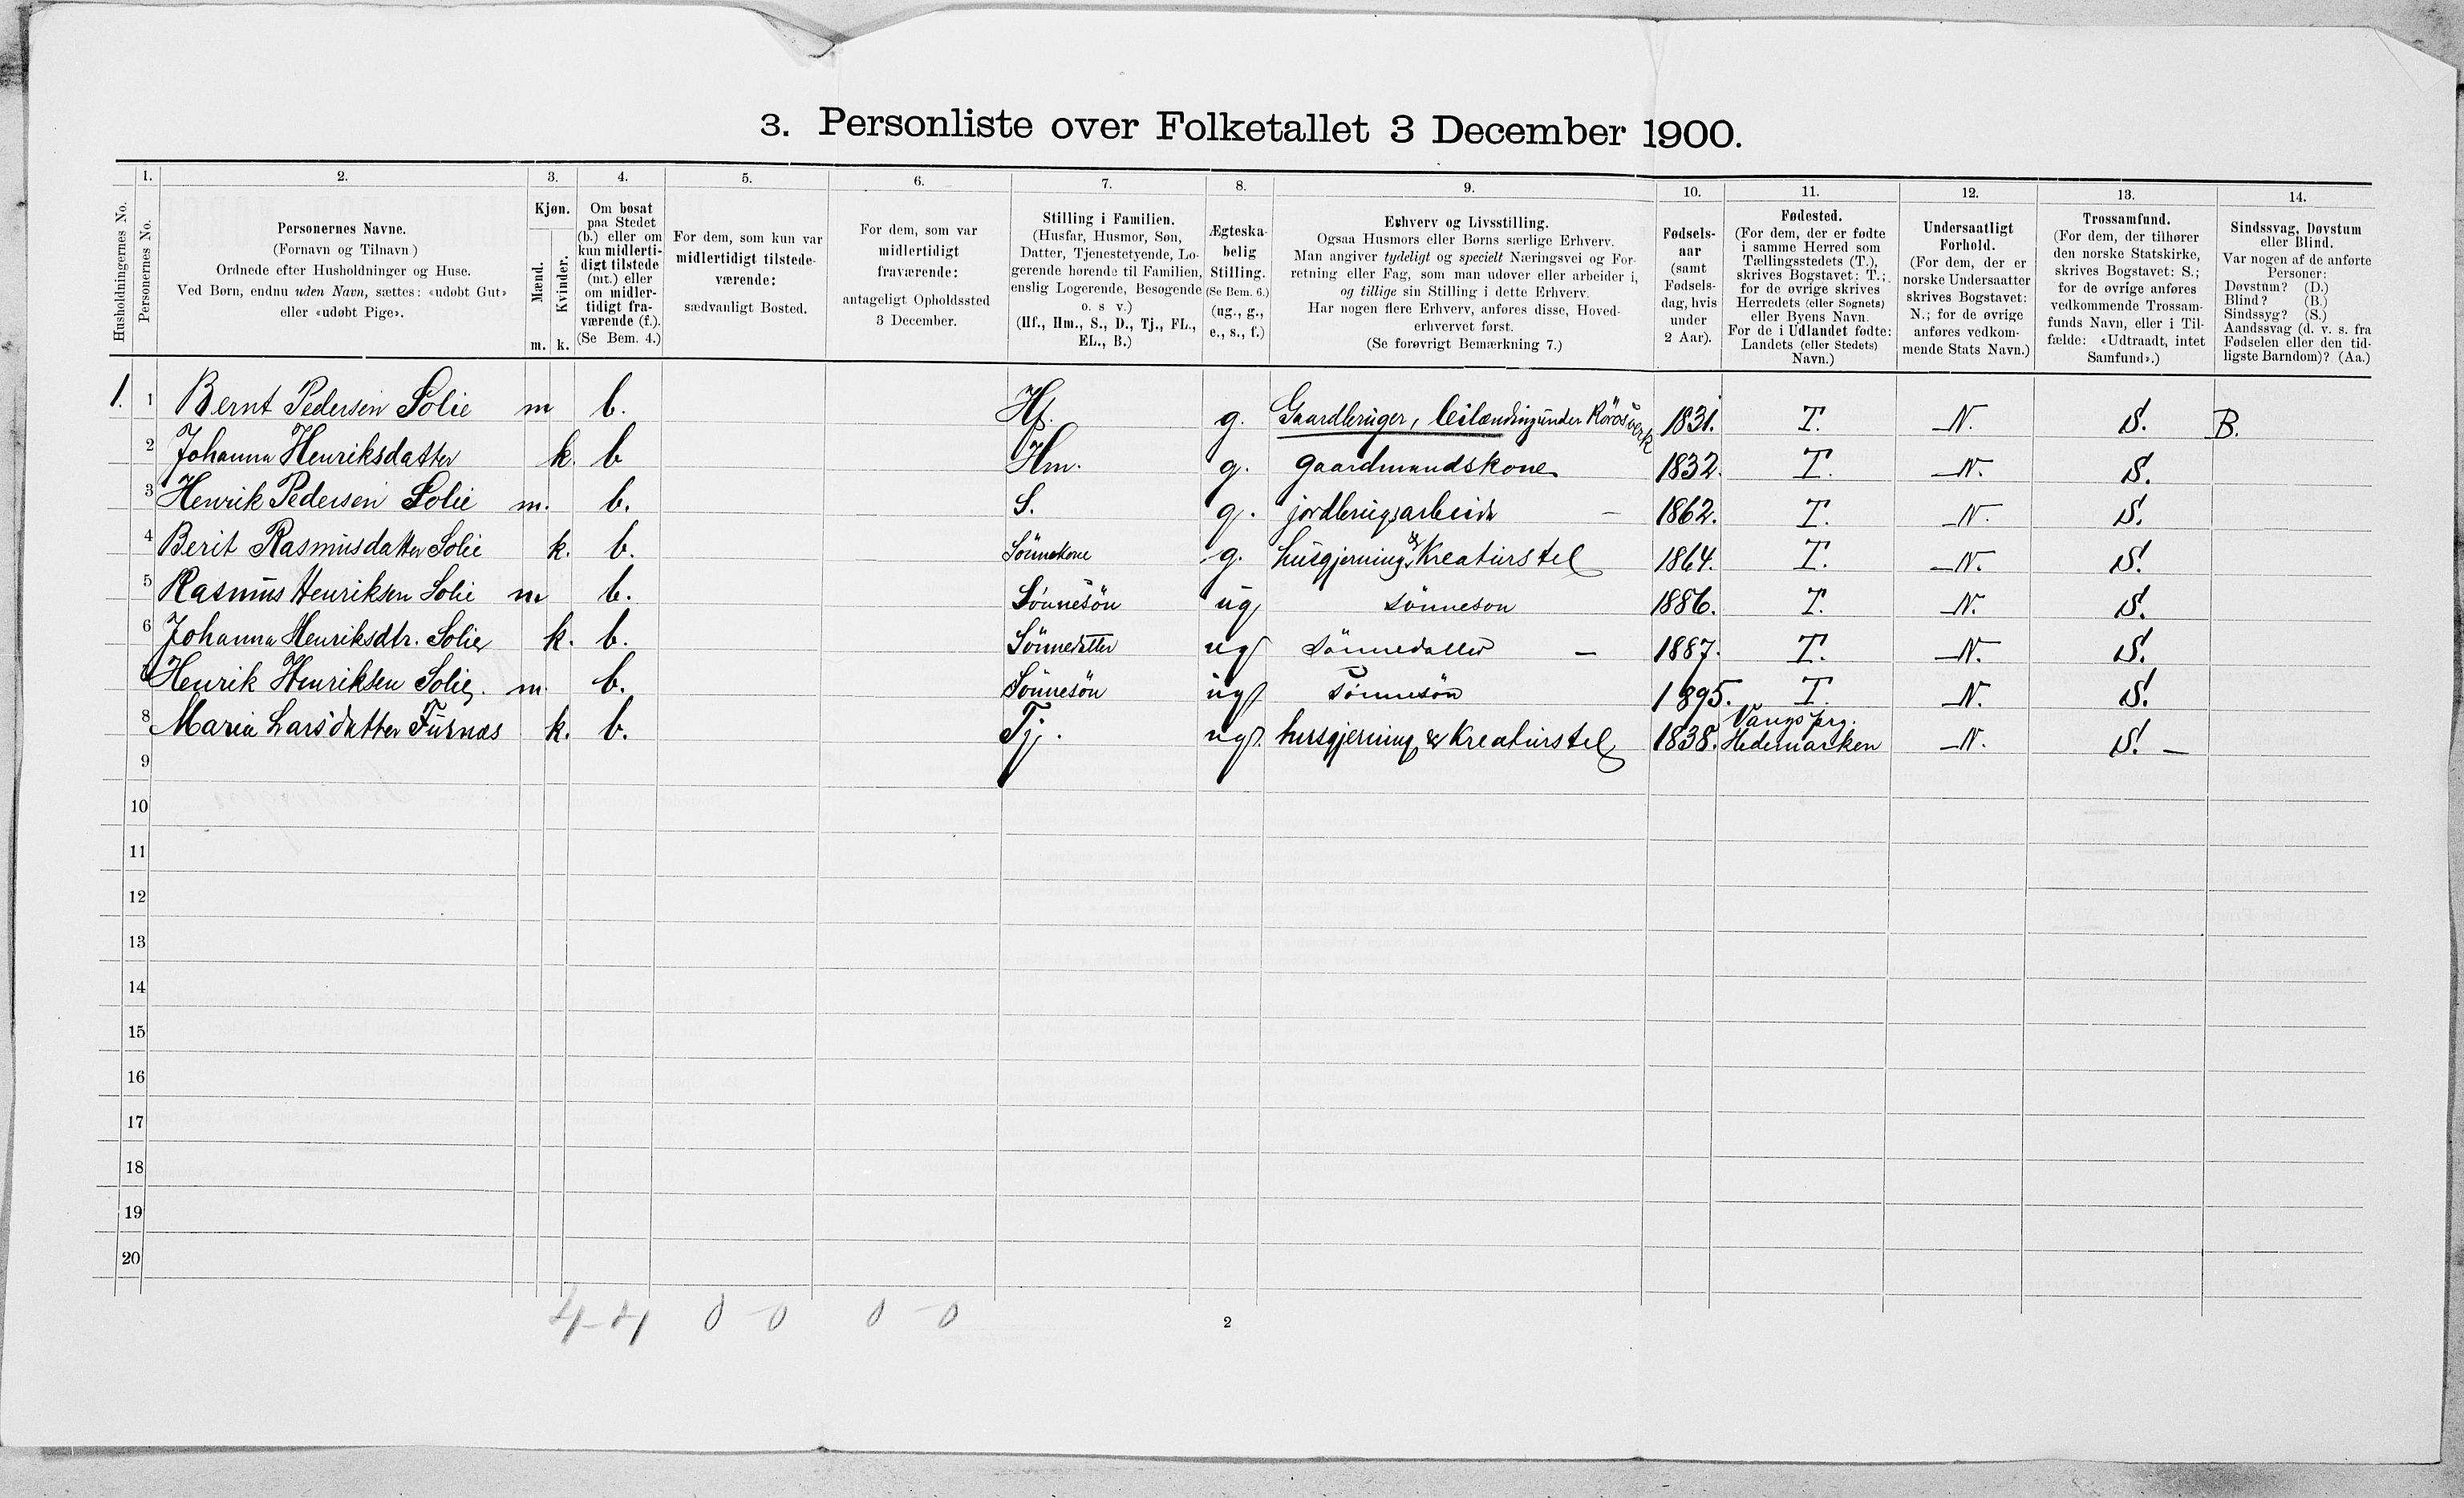 3. Personliste over Folketallet 3 December 1900.
Husholdningernes No.
1. Personernes No.
2. Personernes Navne.
(Fornavn og Tilnavn)
Ordnede efter Husholdninger og Huse.
Ved Børn, endnu uden Navn, sættes: «udøbt Gut»
eller «udøbt Pige».
3. Kjøn.
Mænd. m.
Kvinder. k.
4. Om bosat
paa Stedet
(b.) eller om
kun midlerti-
digt tilstede
(mt.) eller
om midler-
tidigt fra-
værende (f.).
(Se Bem. 4.)
5. For dem, som kun var
midlertidigt tilstede-
værende:
sædvanligt Bosted.
6. For dem, som var
midlertidigt
fraværende:
antageligt Opholdssted
3 December.
7. Stilling i Familien.
(Husfar, Husmor, Søn,
Datter, Tjenestetyende, Lo-
gerende hørende til Familien,
enslig Logerende, Besøgende
o. s v.)
(Hf., Hm., S., D., Tj., FL.,
EL., B.)
8. Ægteska-
belig
Stilling.
(Se Bem. 6.)
(ug., g.,
e., s., f.)
9. Erhverv og Livsstilling.
Ogsaa Husmors eller Børns særlige Erhverv.
Man angiver tydeligt og specielt Næringsvei og For-
retning eller Fag, som man udøver eller arbeider i,
og tillige sin Stilling i dette Erhverv.
Har nogen flere Erhverv, anføres disse, Hoved-
erhvervet først.
(Se forøvrigt Bemærkning 7.)
10. Fødsels-
aar
(samt
Fødsels-
dag, hvis
under
2 Aar).
11. Fødested.
(For dem, der er fødte
i samme Herred som
Tællingsstedets (T.),
skrives Bogstavet: T.;
for de øvrige skrives
Herredets (eller Sognets)
eller Byens Navn.
For de i Udlandet fødte:
Landets (eller Stedets)
Navn.)
12. Undersaatligt
Forhold.
(For dem, der er
norske Undersaatter
skrives Bogstavet:
N.; for de øvrige
anføres vedkom-
mende Stats Navn.)
13. Trossamfund.
(For dem, der tilhører
den norske Statskirke,
skrives Bogstavet: S.;
for de øvrige anføres
vedkommende Trossam-
funds Navn, eller i Til-
fælde: «Udtraadt, intet
Samfund».)
14. Sindssvag, Døvstum
eller Blind.
Var nogen af de anførte
Personer:
Døvstum? (D.)
Blind? (B.)
Sindssyg? (S.)
Aandssvag (d. v. s. fra
Fødselen eller den tid-
ligste Barndom)? (Aa.)
1. 1 Bernt Pedersen Solie m b. Hf. g. Gaardbruger, leilænding under Röros verk 1831. T. N. S. B.
2 Johanna Henriksdatter k. b Hm. g. gaardmandskone 1832. T. N. S.
3 Henrik Pedersen Solie m. b. S. g. jordbrugsarbeide – 1862. T. N. S.
4 Berit Rasmusdatter Solie k. b. Sönnekone g. husgjerning & Kreaturstel 1864. T. N. S.
5 Rasmus Henriksen Solie m b. Sönnesön ug sönneson 1886. T. N. S.
6 Johanna Henriksdtr. Solie k. b. Sönnedatter ug sönnedatter – 1887. T. N. S.
Henrik Henriksen Solie. m. b. Sönnesön ug sönnesön 1895. T. N. S.
8 Maria Larsdatter Furnæs k. b. Tj. ug. husgjerning & Kreaturstel 1838. Vangs prg. Hedemarken N. S. –
9
10
11
12
13
14
15
16
17
18
19
20
4-4 0 - 0 0 - 0
2